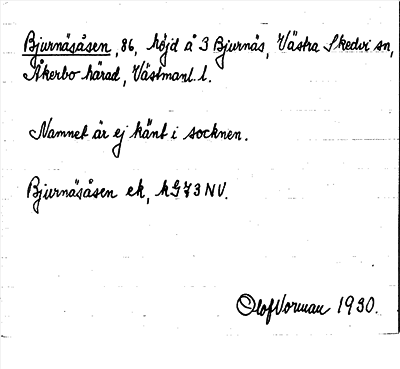 Bjurnäsåsen, 86, höjd å 3 Bjurnäs, Västra Skedvi sn,
Åkerbo härad, Västmanl. l.
Namnet är ej känt i socknen.
Bjurnäsåsen ek, kG 73 NV.
Olof Vorman 1930.